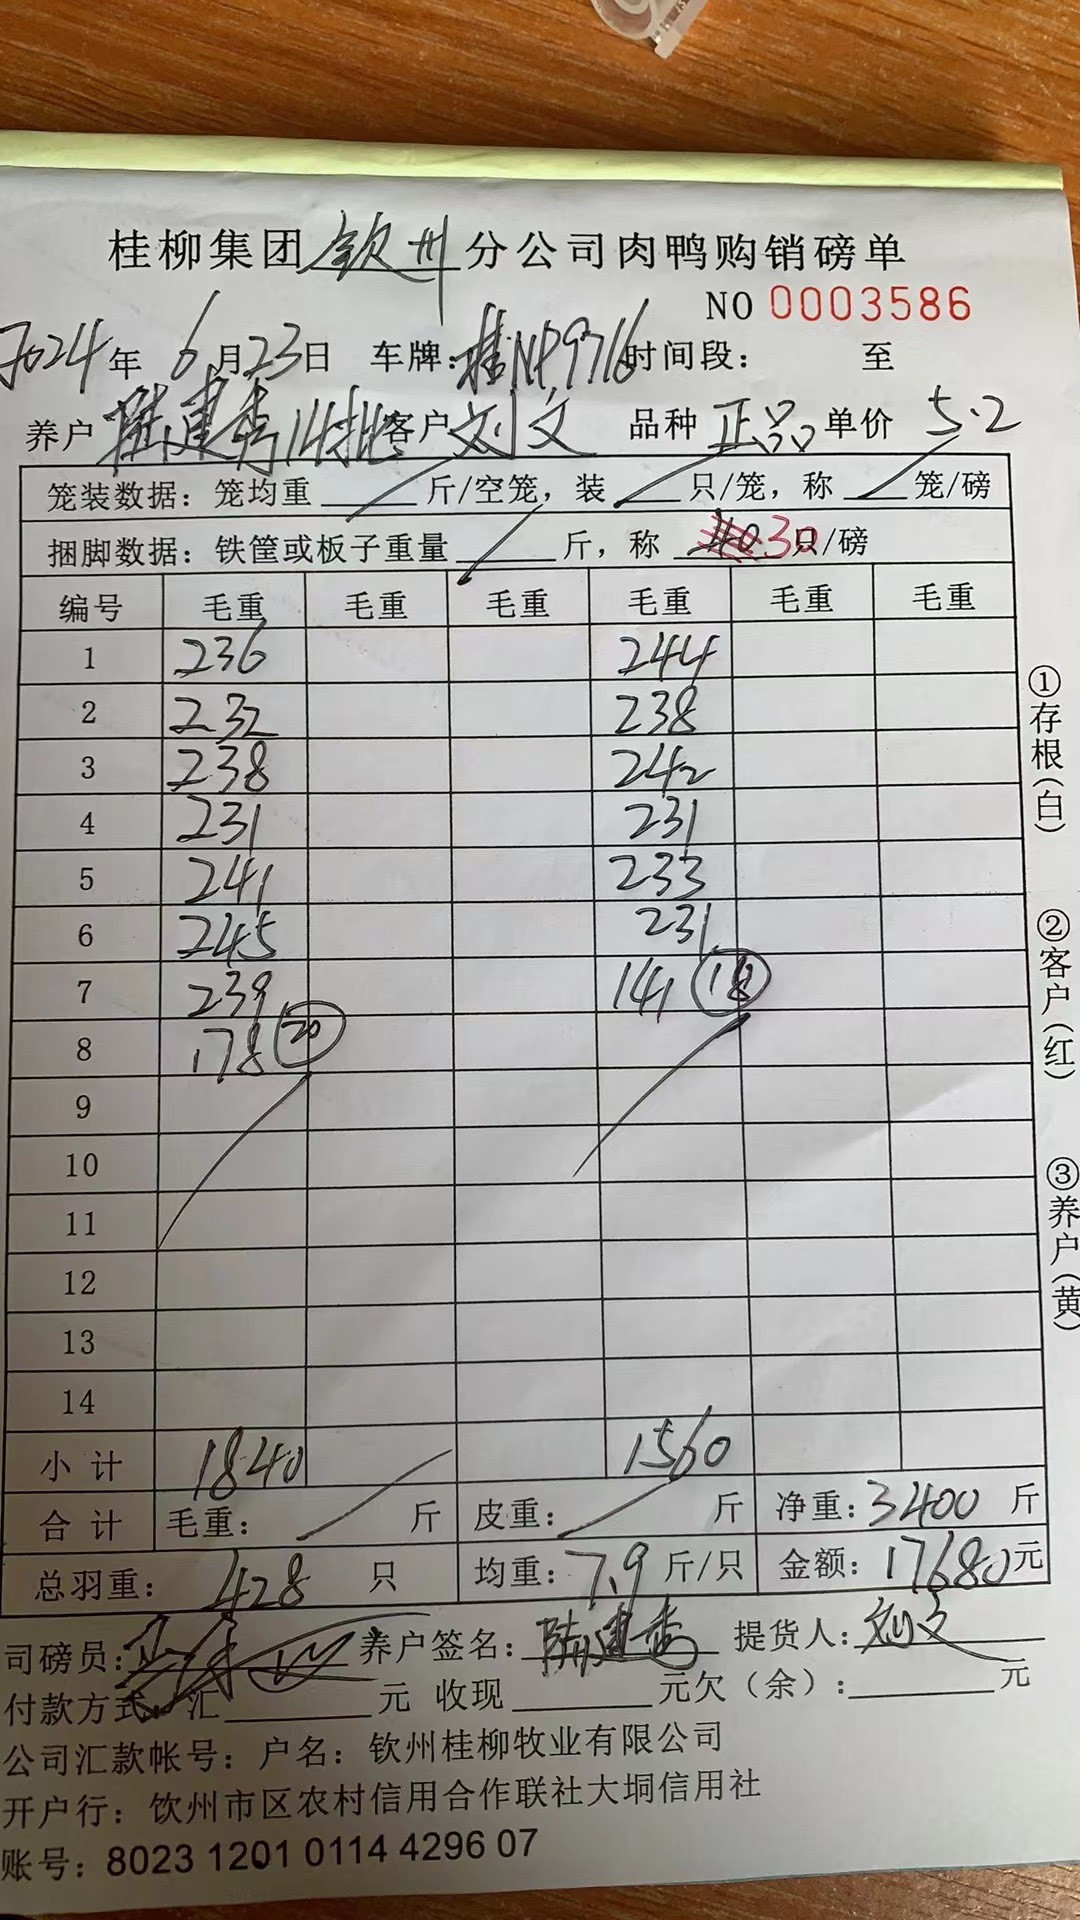 桂柳集团钦州分公司肉鸭购销磅单
NO 0003586
2024年6月23日 车牌:桂NP9716 时间段: 至
养户 陆建秀14批 客户 刘文 品种 正品 单价 5.2
笼装数据:笼均重 斤/空笼,装 只/笼,称 笼/磅
捆脚数据:铁筐或板子重量 斤,称 30只/磅
编号 毛重 毛重 毛重 毛重 毛重 毛重
1 236 244
2 232 238
3 238 242
4 231 231
5 241 233
6 245 231
7 239 141 18
8 178 20
9
10
11
12
13
14
小计 1840 1560
合计 毛重: 斤 皮重: 斤 净重:3400 斤
总羽重: 428 只 均重:7.9 斤/只 金额:17680元
司磅员: 养户签名:陆建秀 提货人:刘文
付款方式:汇 元 收现 元欠(余): 元
公司汇款帐号:户名:钦州桂柳牧业有限公司
开户行:饮州市区农村信用合作联社大垌信用社
账号:8023 1201 0114 4296 07
①存根(白)
②客户(红)
③养户(黄)